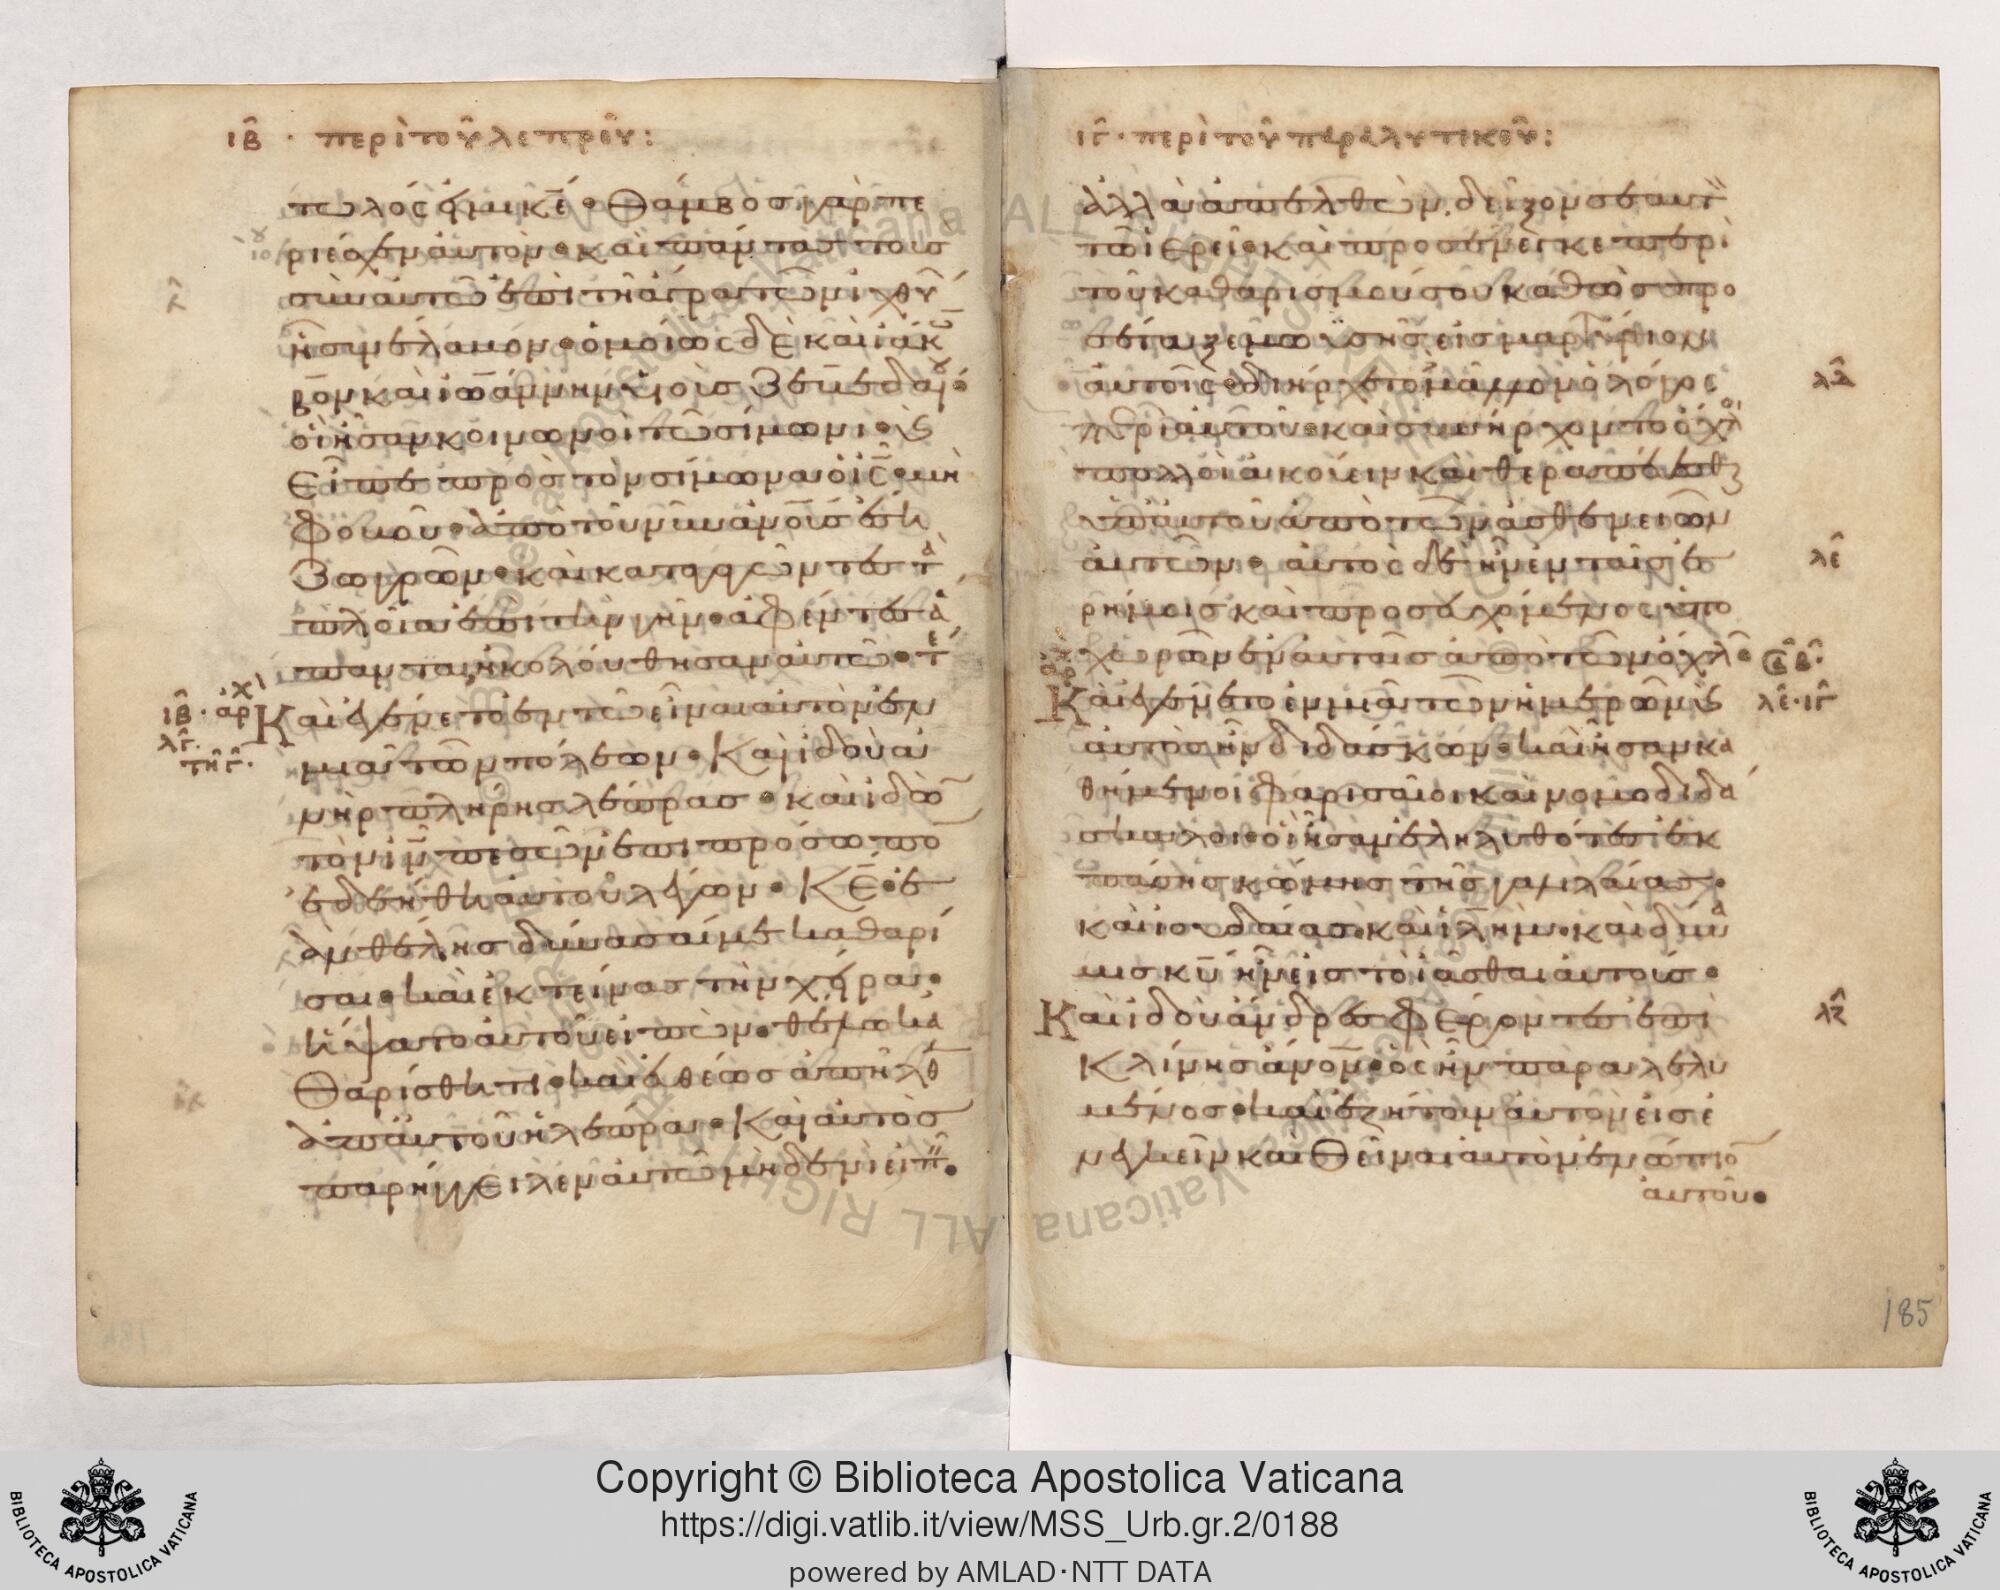 ιβ · περὶ τοῦ λεπροῦ:
τωλός εἰμι κε· Θάμβος γὰρ πε
ριέσχεν αὐτὸν· καὶ πάντας τοὺς
σὺν αὐτῶ ἐπὶ τῆ ἄγρα τῶν ἰχθύ
ων ἧ συνέλαβον· ὁμοίως δὲ καὶ ἰάκω
βον καὶ ἰωάννην υἱοὺς Ζεβεδαίου·
οἳ ἦσαν κοινωνοὶ τῶ σίμωνι· καὶ
εἶπε πρὸς τὸν σίμωνα ὁ ις· μὴ
φοβοῦ· ἀπὸ τοῦ νῦν ἀνους ἔση
Ζωγρῶν· καὶ καταγαγόντες τὰ
πλοῖα ἐπὶ τὴν γῆν· ἀφέντες ἅ
παντα, ἠκολούθησαν αὐτῶ· τέ
ιβ · ἀρχ
λγ.
τῆ γ.
Καὶ ἐγένετο ἐν τῶ εἶναι αὐτὸν ἐν
μιᾶ τῶν πόλεων· Καὶ ἰδοὺ ἀ
νὴρ πλήρης λέπρας· καὶ ἰδὼν
τὸν ιν πεσὼν ἐπὶ πρόσωπον
ἐδεήθη αὐτοῦ λέγων· Κε· ἐ
ὰν θέλης δύνασαί με καθαρί
σαι· καὶ ἐκτείνας τὴν χεῖρα·
ἥψατο αὐτοῦ εἰπὼν· θέλω κα
Θαρίσθητι· καὶ εὐθέως ἀπῆλθεν
ἀπ' αὐτοῦ ἡ λέπρα· Καὶ αὐτὸς
παρήγγειλεν αὐτῶ μηδενὶ εἰπεῖν·
ιγ · περὶ τοῦ παραλυτικοῦ:
ἀλλὰ ἀπελθὼν, δεῖξον σεαυτὸν
τῶ ἱερεῖ· καὶ προσένεγκε περὶ
τοῦ καθαρισμοῦ σου καθὼς προ
σέταξε μωϋσῆς εἰς μαρτύριον
αὐτοῖς· διήρχετο δὲ μᾶλλον ὁ λόγος
λδ
περὶ αὐτοῦ· καὶ συνήρχοντο ὄχλοι
πολλοὶ ἀκούειν καὶ θεραπεύεσθαι
ὑπ' αὐτοῦ ἀπὸ τῶν ἀσθενειῶν
αὐτῶν· αὐτὸς δὲ ἦν ἐν ταῖς ἐ
λε
ρήμοις καὶ προσευχόμενος ὑπο
χωρῶν ἐν αὐταῖς ἀπὸ τῶν ὄχλων·
Καὶ ἐγένετο ἐν μιᾶ τῶν ἡμερῶν καὶ
λε · ιγ
αὐτὸς ἦν διδάσκων· καὶ ἦσαν κα
θήμενοι φαρισαῖοι καὶ νομοδιδά
σκαλοι· οἳ ἦσαν ἐληλυθότες ἐκ
πάσης κώμης τῆς γαλιλαίας·
καὶ ἰουδαίας· καὶ ιλημ· καὶ δύνα
μις κυ ἦν εἰς τὸ ἰᾶσθαι αὐτούς·
Καὶ ἰδοὺ ἄνδρες φέροντες ἐπὶ
λζ
Κλίνης ἀνον· ὃς ἦν παραλελυ
μένος· καὶ ἐζήτουν αὐτὸν εἰσε
νεγκεῖν καὶ Θεῖναι αὐτὸν ἐνώπιον
αὐτοῦ·
185
Copyright © Biblioteca Apostolica Vaticana
https://digi.vatlib.it/view/MSS_Urb.gr.2/0188
powered by AMLAD·NTT DATA
BIBLIOTECA APOSTOLICA VATICANA
BIBLIOTECA APOSTOLICA VATICANA